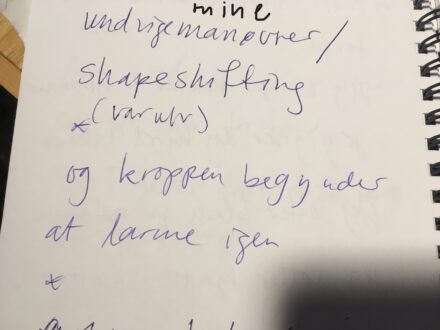 mine
undvigemanøvrer/
shapeshifting
* (varulv)
og kroppen begynder
at larme igen
*